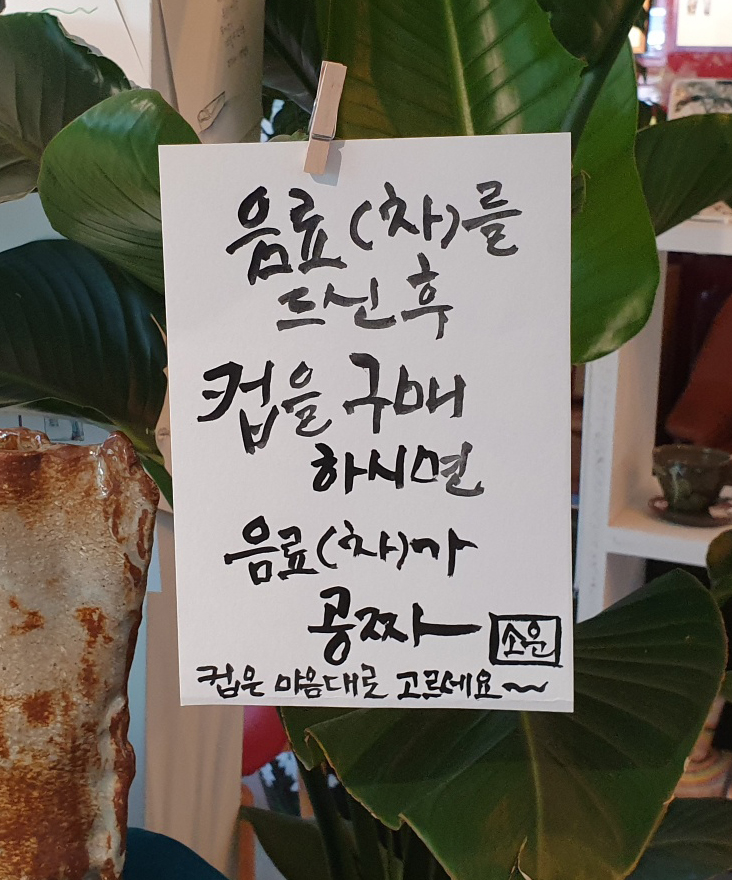 음료(차)를
드신 후
컵을 구매
하시면
음료(차)가
공짜
소운
컵은 마음대로 고르세요~